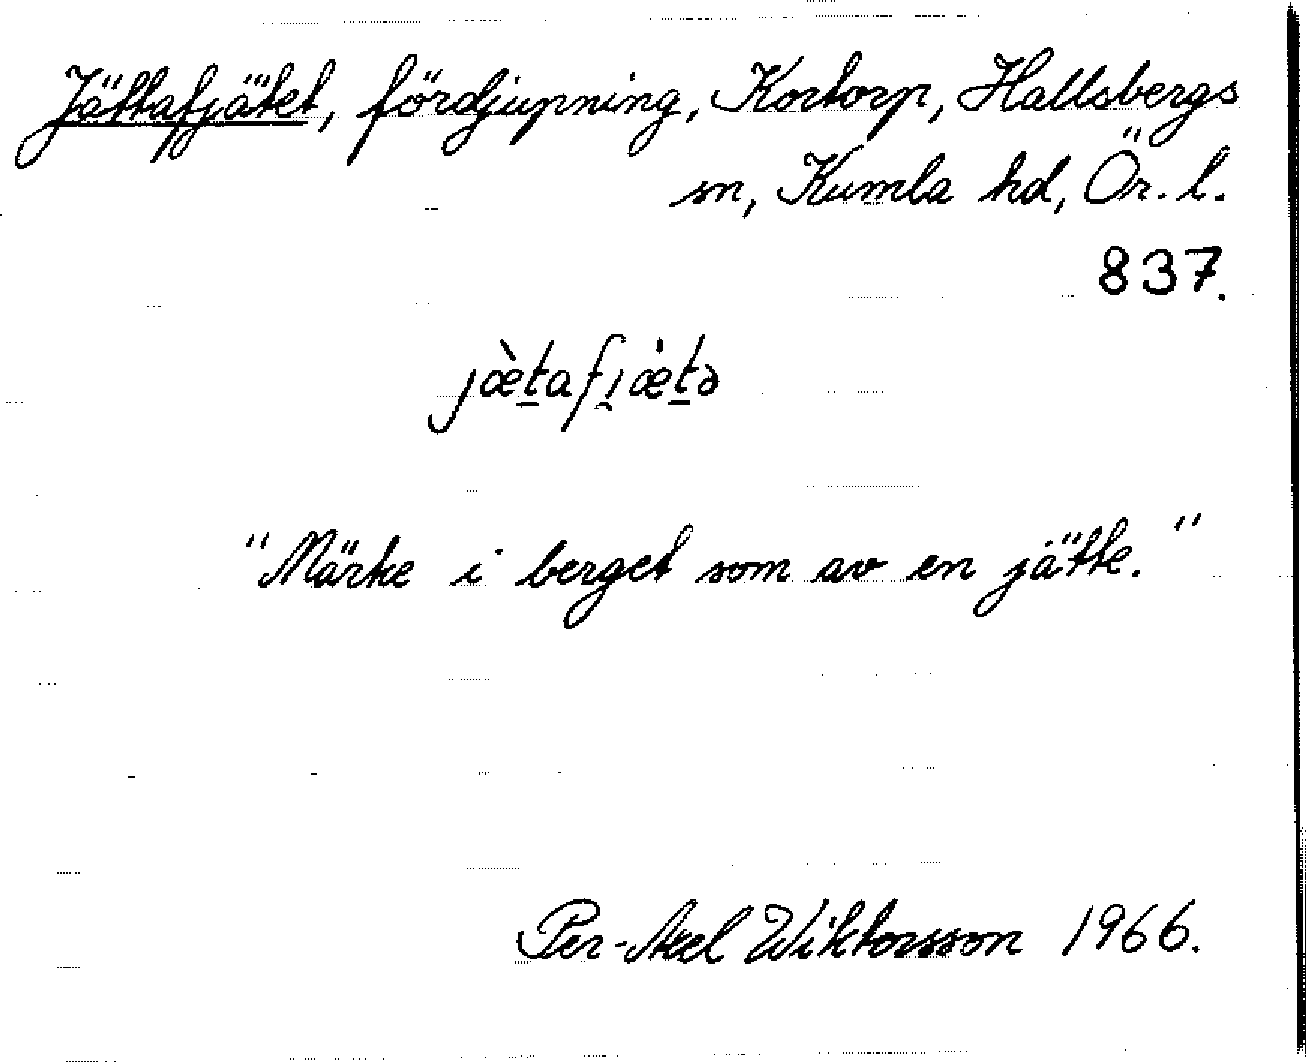 Jättafjätet, fördjupning, Kortorp, Hallsbergs
sn, Kumla hd, Ör. l.
837.
jæ̀t̠afi̯æ̇t̠ə
"Märke i berget som av en jätte."
Per-Axel Wiktorsson 1966.